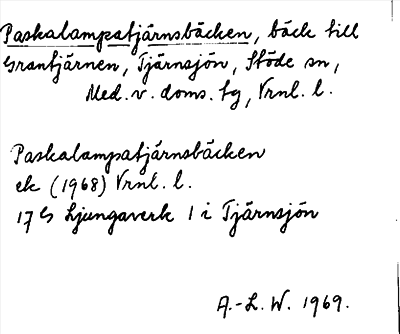 Paskalampatjärnsbäcken, bäck till
Grantjärnen, Tjärnsjön, Stöde sn,
Med. v. doms. tg, Vrnl. l.
Paskalampatjärnsbäcken
ek (1968) Vrnl. l.
17 G Ljungaverk 1 i Tjärnsjön
A.-L. W. 1969.